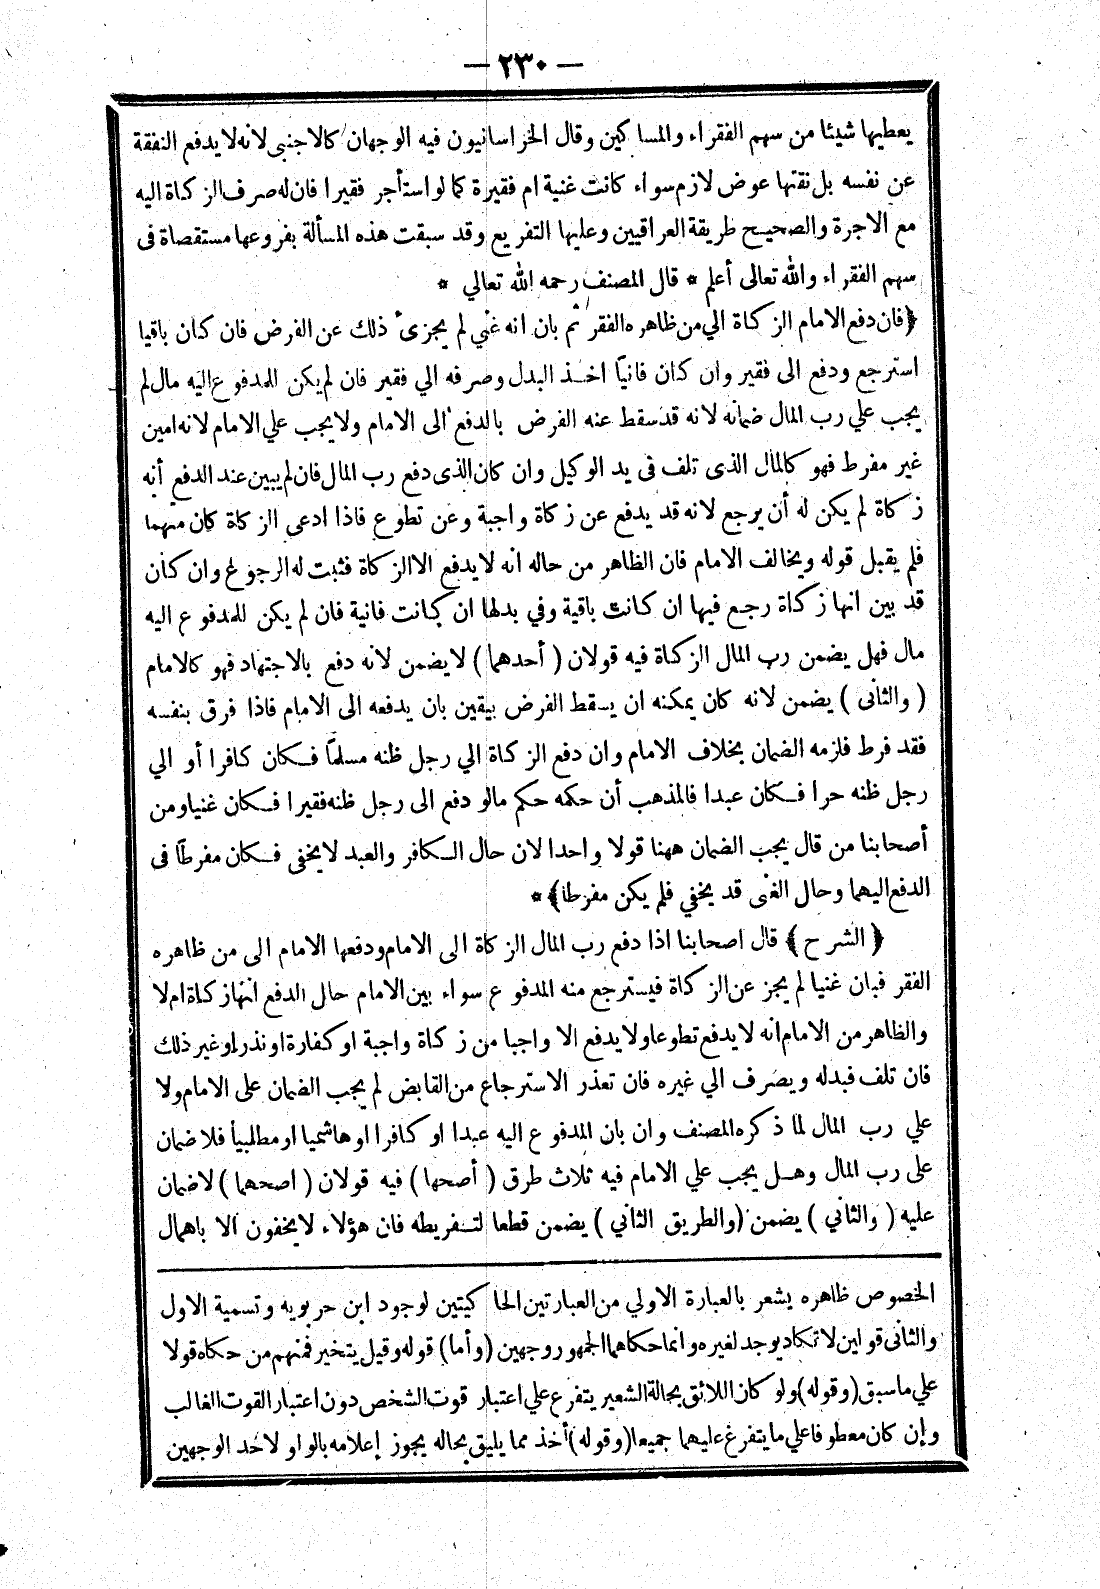 — ٢٣٠ —
يعطيها شيئا من سهم الفقراء والمساكين وقال الخراسانيون فيه الوجهان كالاجنبى لانه لا يدفع النفقة
عن نفسه بل نقتها عوض لازم سواء كانت غنية ام فقيرة كما لو استأجر فقيرا فان له صرف الزكاة اليه
مع الاجرة والصحيح طريقة العراقيين وعليها التفريع وقد سبقت هذه المسألة بفروعها مستقصاة فى
سهم الفقراء والله تعالى أعلم * قال المصنف رحمه الله تعالي *
﴿ فان دفع الامام الزكاة الي من ظاهره الفقر ثم بان انه غني لم يجزئ ذلك عن الفرض فان كان باقيا
استرجع ودفع الى فقير وان كان فانيًا اخذ البدل وصرفه الي فقير فان لم يكن للمدفوع اليه مال لم
يجب علي رب المال ضمانه لانه قد سقط عنه الفرض بالدفع الى الامام ولا يجب علي الامام لانه امين
غير مفرط فهو كالمال الذى تلف فى يد الوكيل وان كان الذى دفع رب المال فان لم يبين عند الدفع أنه
زكاة لم يكن له أن يرجع لانه قد يدفع عن زكاة واجبة وعن تطوع فاذا ادعى الزكاة كان متهما
فلم يقبل قوله ويخالف الامام فان الظاهر من حاله انه لا يدفع الا الزكاة فثبت له الرجوع وان كان
قد بين انها زكاة رجع فيها ان كانت باقية وفي بدلها ان كانت فانية فان لم يكن للمدفوع اليه
مال فهل يضمن رب المال الزكاة فيه قولان ( أحدهما ) لا يضمن لانه دفع بالاجتهاد فهو كالامام
( والثانى ) يضمن لانه كان يمكنه ان يسقط الفرض بيقين بان يدفعه الى الامام فاذا فرق بنفسه
فقد فرط فلزمه الضمان بخلاف الامام وان دفع الزكاة الي رجل ظنه مسلمًا فكان كافرا أو الي
رجل ظنه حرا فكان عبدا فالمذهب أن حكمه حكم مالو دفع الى رجل ظنه فقيرا فكان غنيا ومن
أصحابنا من قال يجب الضمان ههنا قولا واحدا لان حال الكافر والعبد لا يخفى فكان مفرطًا فى
الدفع اليهما وحال الغنى قد يخفي فلم يكن مفرطا ﴾ *
﴿ الشرح ﴾ قال اصحابنا اذا دفع رب المال الزكاة الى الامام ودفعها الامام الى من ظاهره
الفقر فبان غنيا لم يجز عن الزكاة فيسترجع منه المدفوع سواء بين الامام حال الدفع انها زكاة ام لا
والظاهر من الامام انه لا يدفع تطوعا ولا يدفع الا واجبا من زكاة واجبة او كفارة او نذر او غير ذلك
فان تلف فبدله ويصرف الي غيره فان تعذر الاسترجاع من القابض لم يجب الضمان على الامام ولا
علي رب المال لما ذكره المصنف وان بان المدفوع اليه عبدا او كافرا او هاشميا او مطلبيا فلا ضمان
على رب المال وهل يجب علي الامام فيه ثلاث طرق ( أصحها ) فيه قولان ( اصحهما ) لا ضمان
عليه ( والثاني ) يضمن ( والطريق الثاني ) يضمن قطعا لتفريطه فان هؤلاء لا يخفون الا باهمال
الخصوص ظاهره يشعر بالعبارة الاولي من العبارتين الحاكيتين لوجود ابن حربويه وتسمية الاول
والثانى قولين لا تكاد يوجد لغيره وانما حكاهما الجمهور وجهين (وأما) قوله وقيل يتخير فمنهم من حكاه قولا
علي ما سبق (وقوله) ولو كان اللائق بحالة الشعير يتفرع علي اعتبار قوت الشخص دون اعتبار القوت الغالب
وإن كان معطوفا علي ما يتفرع عليهما جميعا (وقوله) أخذ مما يليق بحاله يجوز إعلامه بالواو لاحد الوجهين